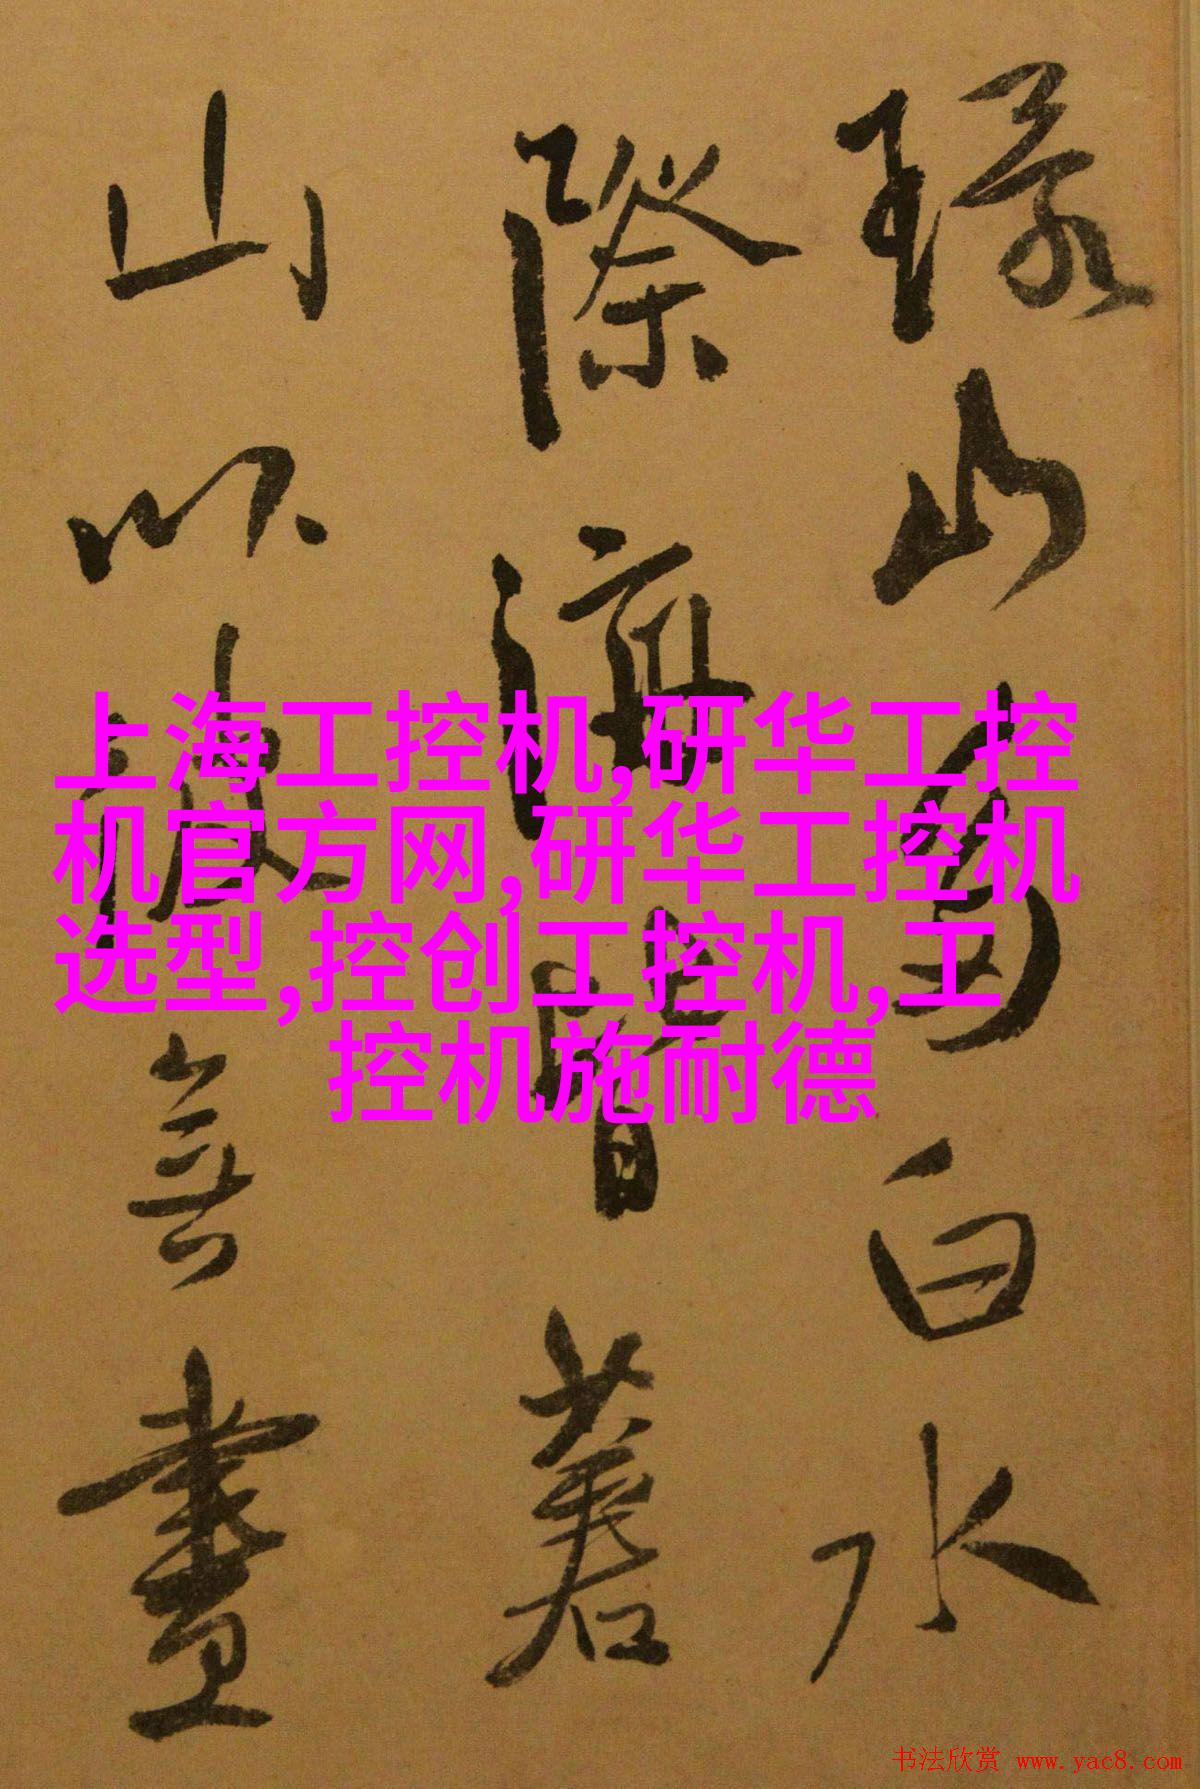 山多白水
際海皆
山以無
上海工控机,研华工控
机官方网,研华工控机
选型,控创工控机,工
控机施耐德
书法欣赏 www.yac8.com